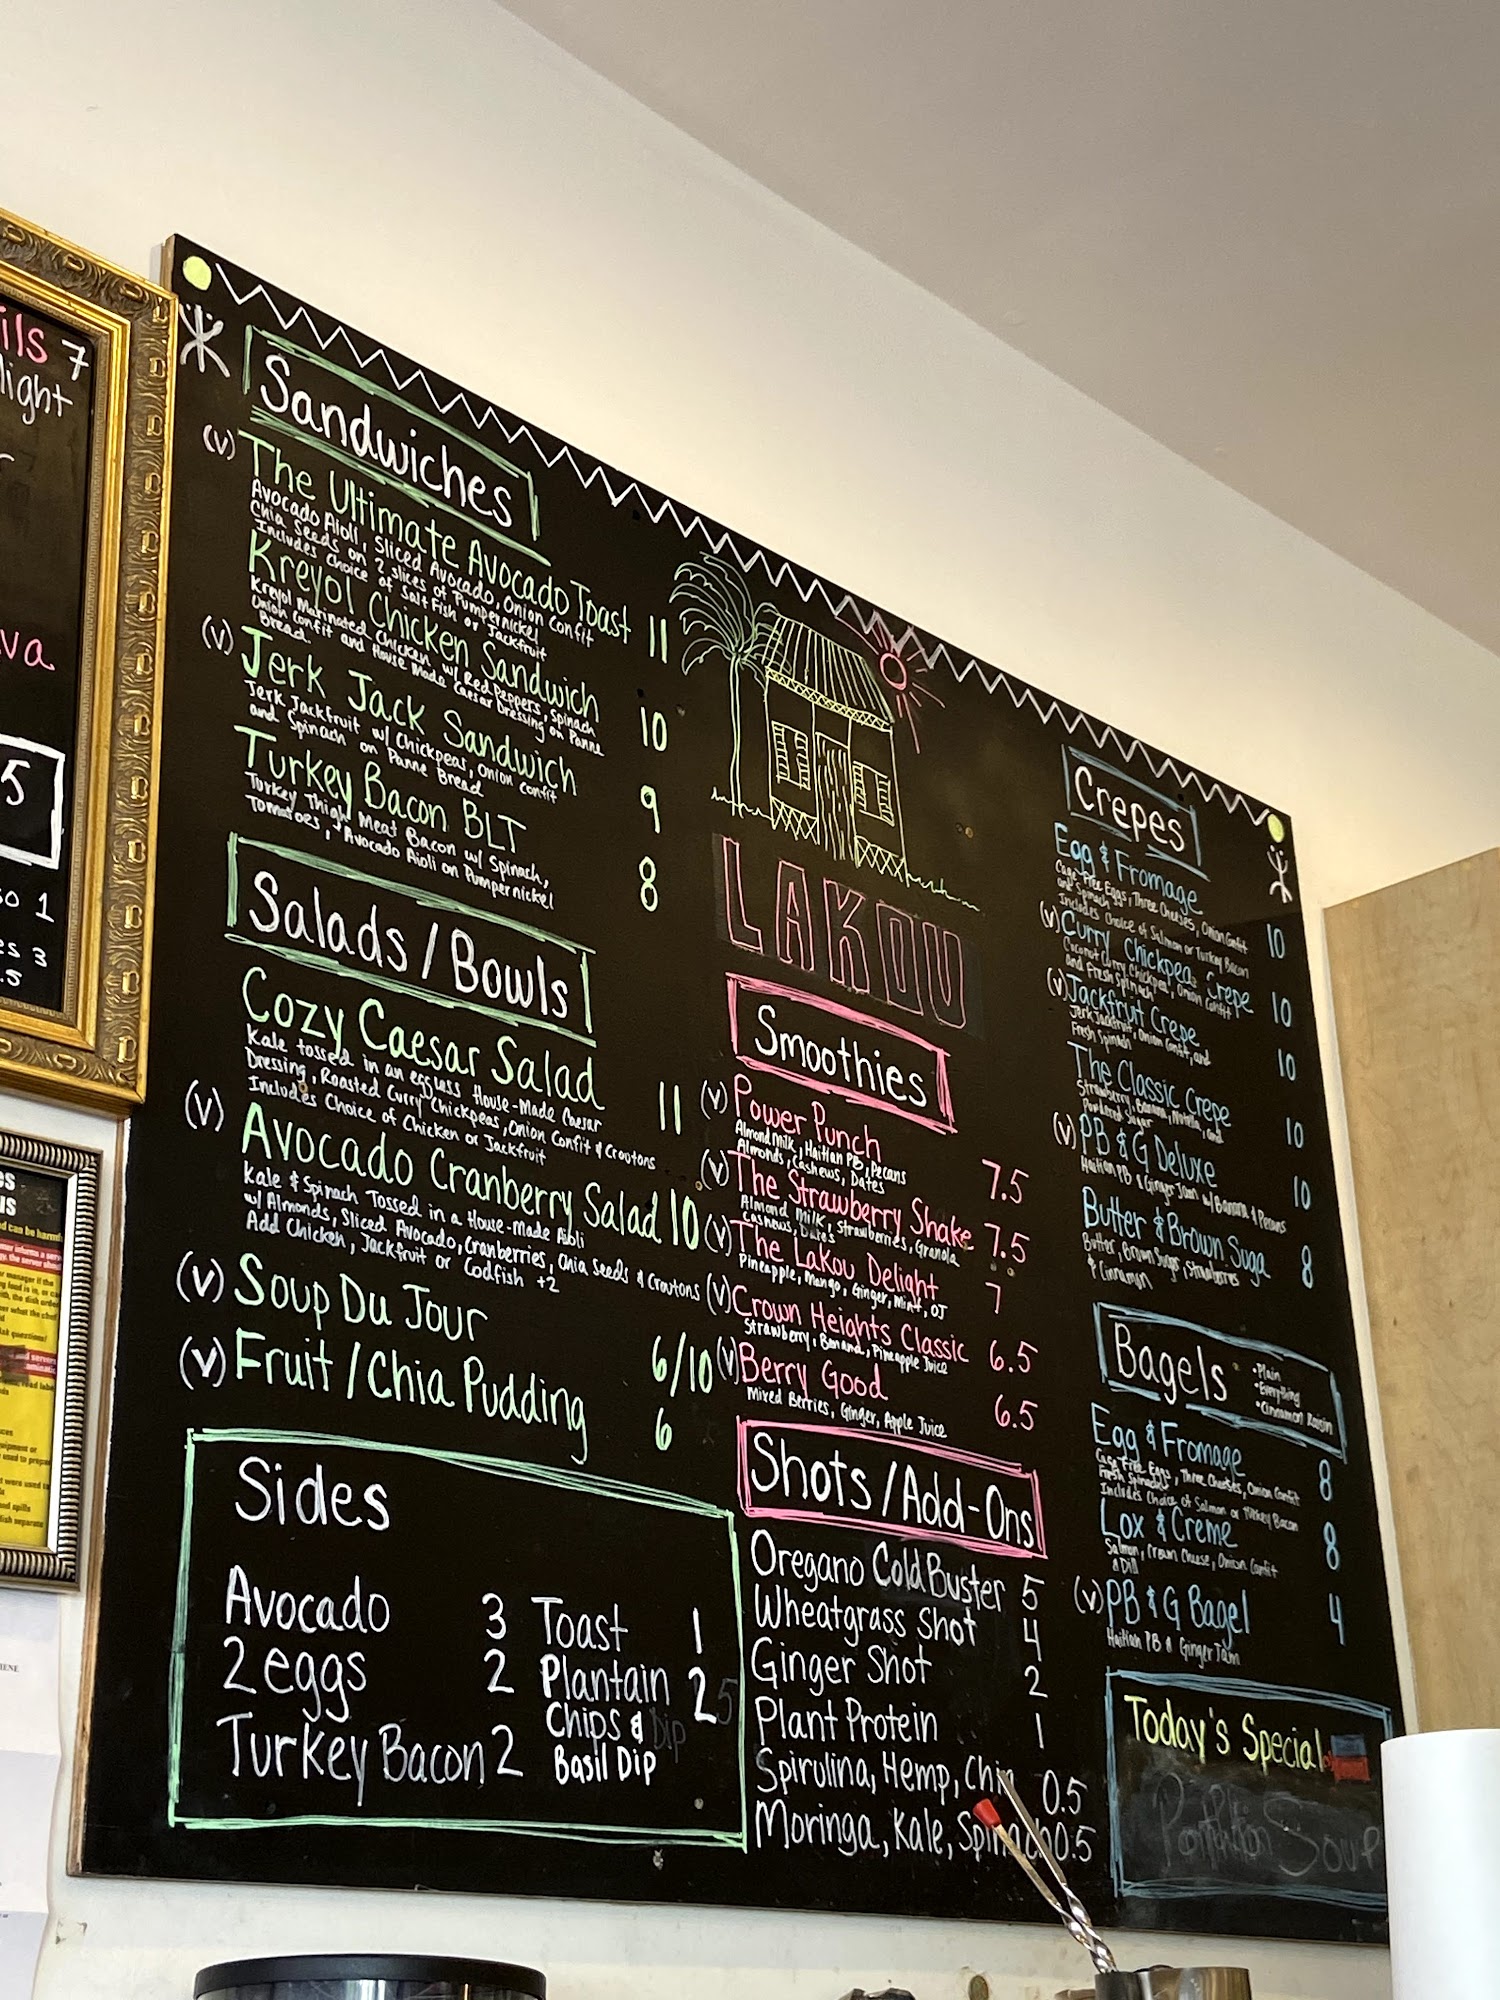 ils 7
light
va
5
so 1
es 3
.5
Sandwiches
(v) The Ultimate Avocado Toast 11
Avocado Aioli, Sliced Avocado, Onion Confit
Chia Seeds on 2 slices of Pumpernickel
Includes Choice of Salt Fish or Jackfruit
Kreyol Chicken Sandwich 10
Kreyol Marinated Chicken w/ Red Peppers, Spinach
Onion Confit and House Made Caesar Dressing on Panne
Bread.
(v) Jerk Jack Sandwich 9
Jerk Jackfruit w/ Chickpeas, Onion Confit
and Spinach on Panne Bread
Turkey Bacon BLT 8
Turkey Thigh Meat Bacon w/ Spinach,
Tomatoes, & Avocado Aioli on Pumpernickel
Salads / Bowls
Cozy Caesar Salad 11
Kale tossed in an eggless House-Made Caesar
Dressing, Roasted Curry Chickpeas, Onion Confit & Croutons
Includes Choice of Chicken or Jackfruit
(v) Avocado Cranberry Salad 10
Kale & Spinach Tossed in a House-Made Aioli
w/ Almonds, Sliced Avocado, Cranberries, Chia Seeds & Croutons
Add Chicken, Jackfruit or Codfish +2
(v) Soup Du Jour 6/10
(v) Fruit / Chia Pudding 6
Sides
Avocado 3
2 eggs 2
Turkey Bacon 2
Toast 1
Plantain 2
Chips &
Basil Dip
LAKOU
Smoothies
(v) Power Punch 7.5
Almond Milk, Haitian PB, Pecans
Almonds, Cashews, Dates
(v) The Strawberry Shake 7.5
Almond Milk, Strawberries, Granola
Cashews, Dates
(v) The Lakou Delight 7
Pineapple, Mango, Ginger, Mint, OJ
(v) Crown Heights Classic 6.5
Strawberry, Banana, Pineapple Juice
(v) Berry Good 6.5
Mixed Berries, Ginger, Apple Juice
Shots / Add-Ons
Oregano Cold Buster 5
Wheatgrass Shot 4
Ginger Shot 2
Plant Protein 1
Spirulina, Hemp, Chia 0.5
Moringa, Kale, Spinach 0.5
Crepes
Egg & Fromage 10
Cage Free Eggs, Three Cheeses, Onion Confit
and Spinach
Includes Choice of Salmon or Turkey Bacon
(v) Curry Chickpea Crepe 10
Coconut Curry Chickpea, Onion Confit
and Fresh Spinach
(v) Jackfruit Crepe 10
Jerk Jackfruit, Onion Confit, and
Fresh Spinach
The Classic Crepe 10
Strawberry, Banana, Nutella, and
Powdered Sugar
(v) PB & G Deluxe 10
Haitian PB & Ginger Jam w/ Banana & Pecans
Butter & Brown Suga 8
Butter, Brown Sugar, Strawberries
& Cinnamon
Bagels
• Plain
• Everything
• Cinnamon Raisin
Egg & Fromage 8
Cage Free Eggs, Three Cheeses, Onion Confit
Fresh Spinach
Includes Choice of Salmon or Turkey Bacon
Lox & Creme 8
Salmon, Cream Cheese, Onion Confit
& Dill
(v) PB & G Bagel 4
Haitian PB & Ginger Jam
Today's Special
Soup